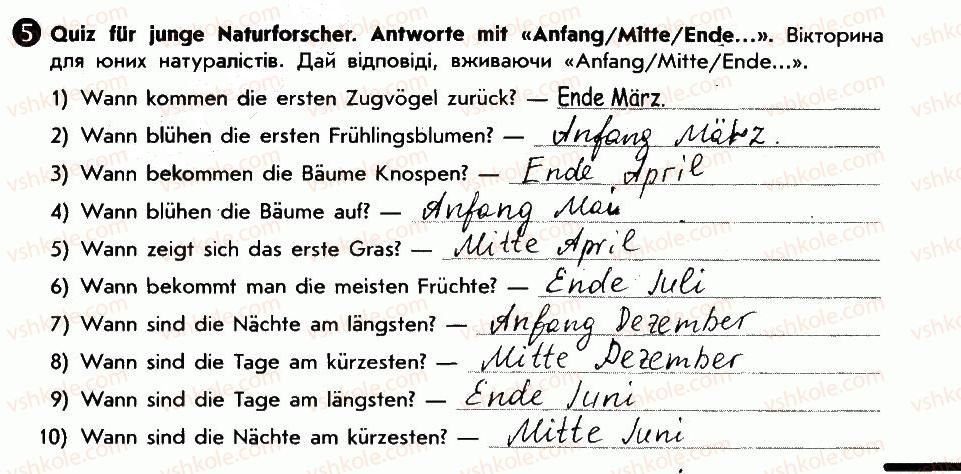 5 Quiz für junge Naturforscher. Antworte mit «Anfang/Mitte/Ende...». Вікторина
для юних натуралістів. Дай відповіді, вживаючи «Anfang/Mitte/Ende...».
1) Wann kommen die ersten Zugvögel zurück? — Ende März.
2) Wann blühen die ersten Frühlingsblumen? — Anfang März.
3) Wann bekommen die Bäume Knospen? — Ende April
4) Wann blühen die Bäume auf? — Anfang Mai
5) Wann zeigt sich das erste Gras? — Mitte April
6) Wann bekommt man die meisten Früchte? — Ende Juli
7) Wann sind die Nächte am längsten? — Anfang Dezember
8) Wann sind die Tage am kürzesten? — Mitte Dezember
9) Wann sind die Tage am längsten? — Ende Juni
10) Wann sind die Nächte am kürzesten? — Mitte Juni
vshkole.com